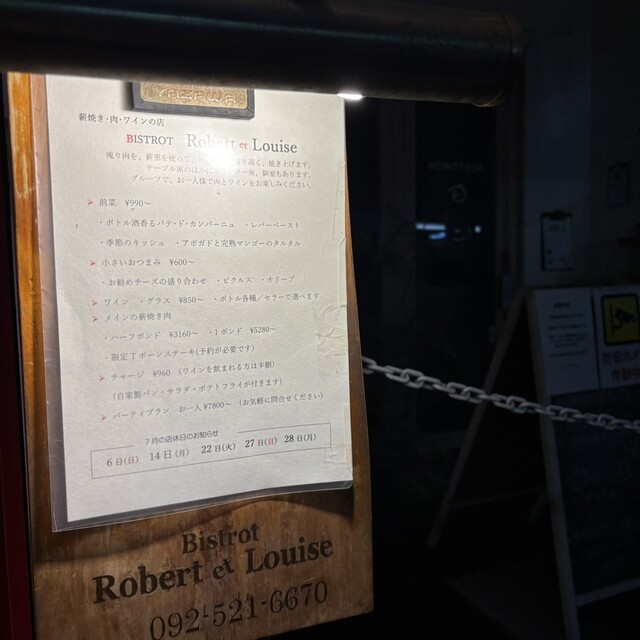 薪焼き・肉・ワインの店
BISTROT Robert et Louise
塊り肉を、薪窯を使って、 り高く、焼き上げます。
テーブル席のほか 席、個室もあります。
グループで、お一人様で肉とワインをお楽しみください。
➤ 前菜 ¥990～
・ボトル酒香るパテ・ド・カンパーニュ ・レバーペースト
・季節のキッシュ ・アボガドと完熟マンゴーのタルタル
➤ 小さいおつまみ ¥600～
・お勧めチーズの盛り合わせ ・ピクルス ・オリーブ
➤ ワイン ・グラス ¥850～ ・ボトル各種／セラーで選べます
➤ メインの薪焼き肉
・ハーフポンド ¥3160～ ・1ポンド ¥5280～
限定Tボーンステーキ(予約が必要です)
➤ チャージ ¥960 (ワインを飲まれる方は半額)
(自家製パン・サラダ・ポテトフライが付きます)
➤ パーティプラン お一人¥7800～ (お気軽に問合せください)
7月の店休日のお知らせ
6日(日) 14日(月) 22日(火) 27日(日) 28日(月)
Bistrot
Robert et Louise
092-521-6670
防犯カメラ
作動中